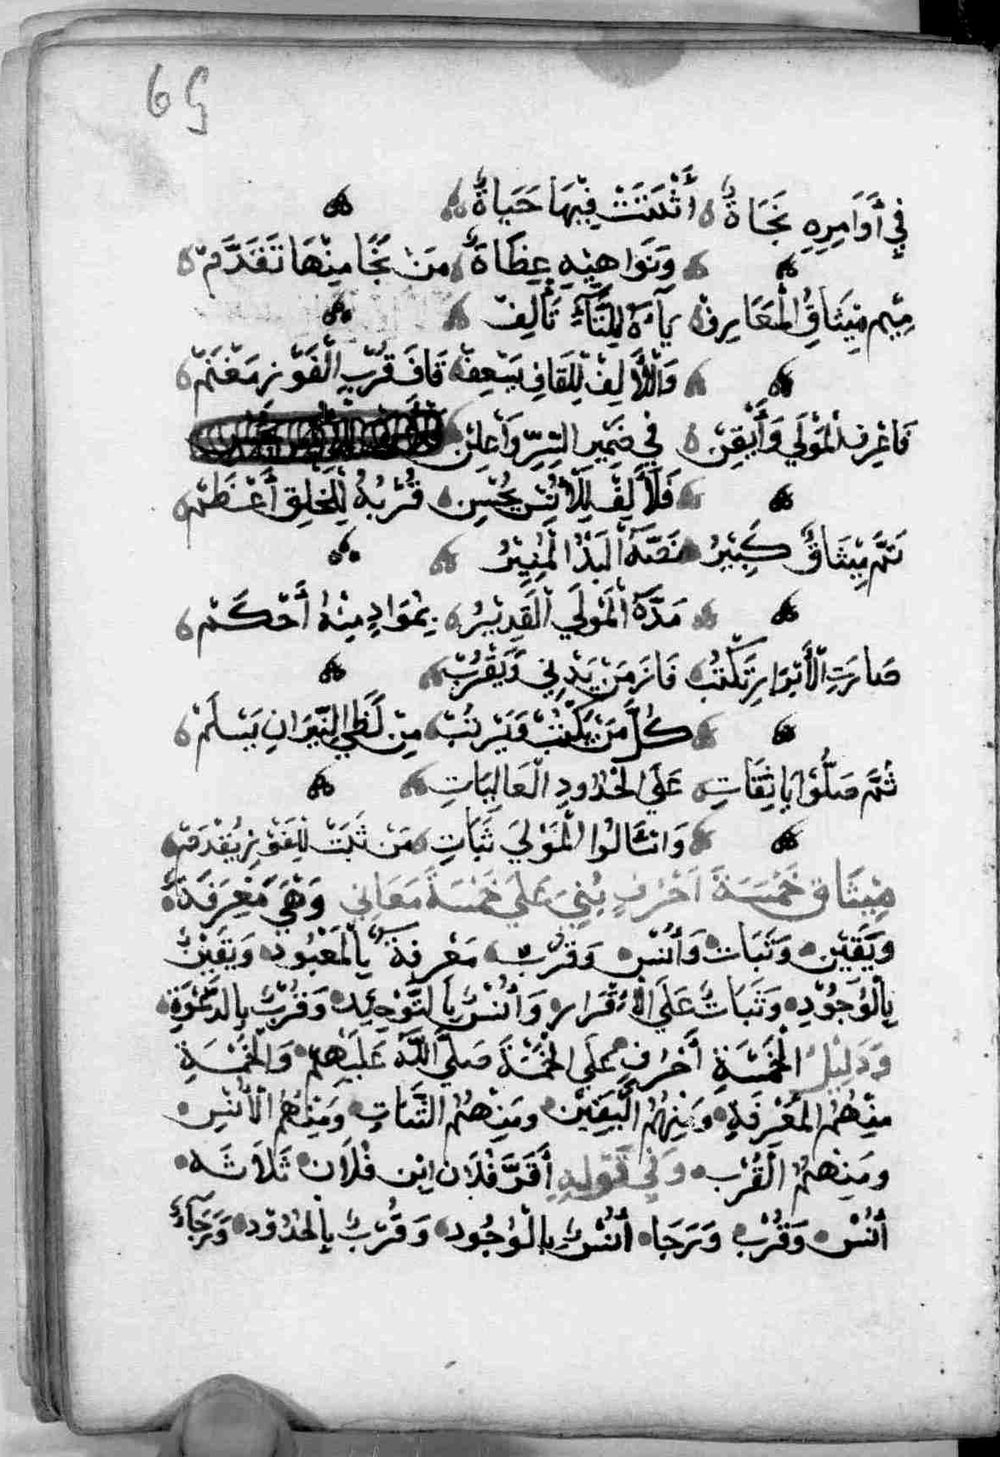 69
في أَوَامِرِهِ نَجَاةٌ أَثْبَتَتْ فِيْهَا حَيَاةٌ
وَنَوَاهِيْهِ عِظَاةٌ مَنْ نَجَا مِنْهَا تَقَدَّمْ
مِيْم مِيْثَاقُ الْمَعَارِفْ يَآءُهُ لِلثَّآءِ تَآلِفْ
وَالْأَلِفْ لِلْقَافِ يَسْعِفْ قَافَ قُرْبِ الْفَوْزِ مَغْنَمْ
فَاعْرِفِ الْمَوْلَى وَأَيْقِنْ فِي ضَمِيْرِ السِّرِّ وَاعْلِنْ
فَلْأَلِفْ لِلْأُنْسِ يُحْسِنْ قُرْبُهُ لِلْخَلِقِ أَعْظَمْ
تَمَّ مِيْثَاقٌ كَبِيْرُ نَصَّهُ الْبَدْرُ الْمُنِيْرُ
مَدَّهُ الْمَوْلَى الْقَدِيْرُ بِمَوَادٍ مِنْهُ أَحْكَمْ
صَارَتِ الْأَبْرَارِ تَكْتُبْ فَازَ مَنْ يَدْنِي وَيَقْرُبْ
كُلَّ مَنْ يَكْتُبْ وَيَرْتُبْ مِنْ لَظَى النِّيْرَانِ يَسْلَمْ
ثُمَّ صَلُّوْا يَا ثِقَاتِ عَلَى الْحُدُودِ الْعَالِيَاتِ
وَاسْئَالُوا الْمَوْلَى ثَبَاتِ مَنْ ثَبَتْ لِلْفَوْزِ يُقْدَمْ
مِيْثَاق خَمْسَةَ اَحْرُفٍ بُنِيَ عَلَى خَمْسَةَ مَعَانِي وَهْيَ مَعْرِفَةٌ
وَيَقِيْن وَثَبَات وَأُنْس وَقُرْب مَعْرِفَةٌ بِالْمَعْبُود وَيَقِيْنٌ
بِالْوُجُوْدِ وَثَبَاتٌ عَلَى الْإِقْرَار وَأُنْسٌ بِالتَّوْحِيْد وَقُرْبٌ بِالدَّعْوَةِ
وَدَلِيْلُ الْخَمْسَةِ أَحْرُفٍ عَلَى الْخَمْسَةَ صَلَّى اللهُ عَلَيْهِمْ وَالْخَمْسَةِ
مِنْهُمُ الْمَعْرِفَةِ وَمِنْهُمُ الْيَقِيْن وَمِنْهُمُ الثَّبَاتِ وَمِنْهُمُ الْأُنْسِ
وَمِنْهُمُ الْقُرْب وَفِي قَوْلِهِ أَقَرَّ فُلَان ابْن فُلَان ثَلَاثَه
أُنْس وَقُرْب وَرَجَاء أُنْسٌ بِالْوُجُود وَقُرْبٌ بِالْحُدُوْد وَرَجَآءٌ